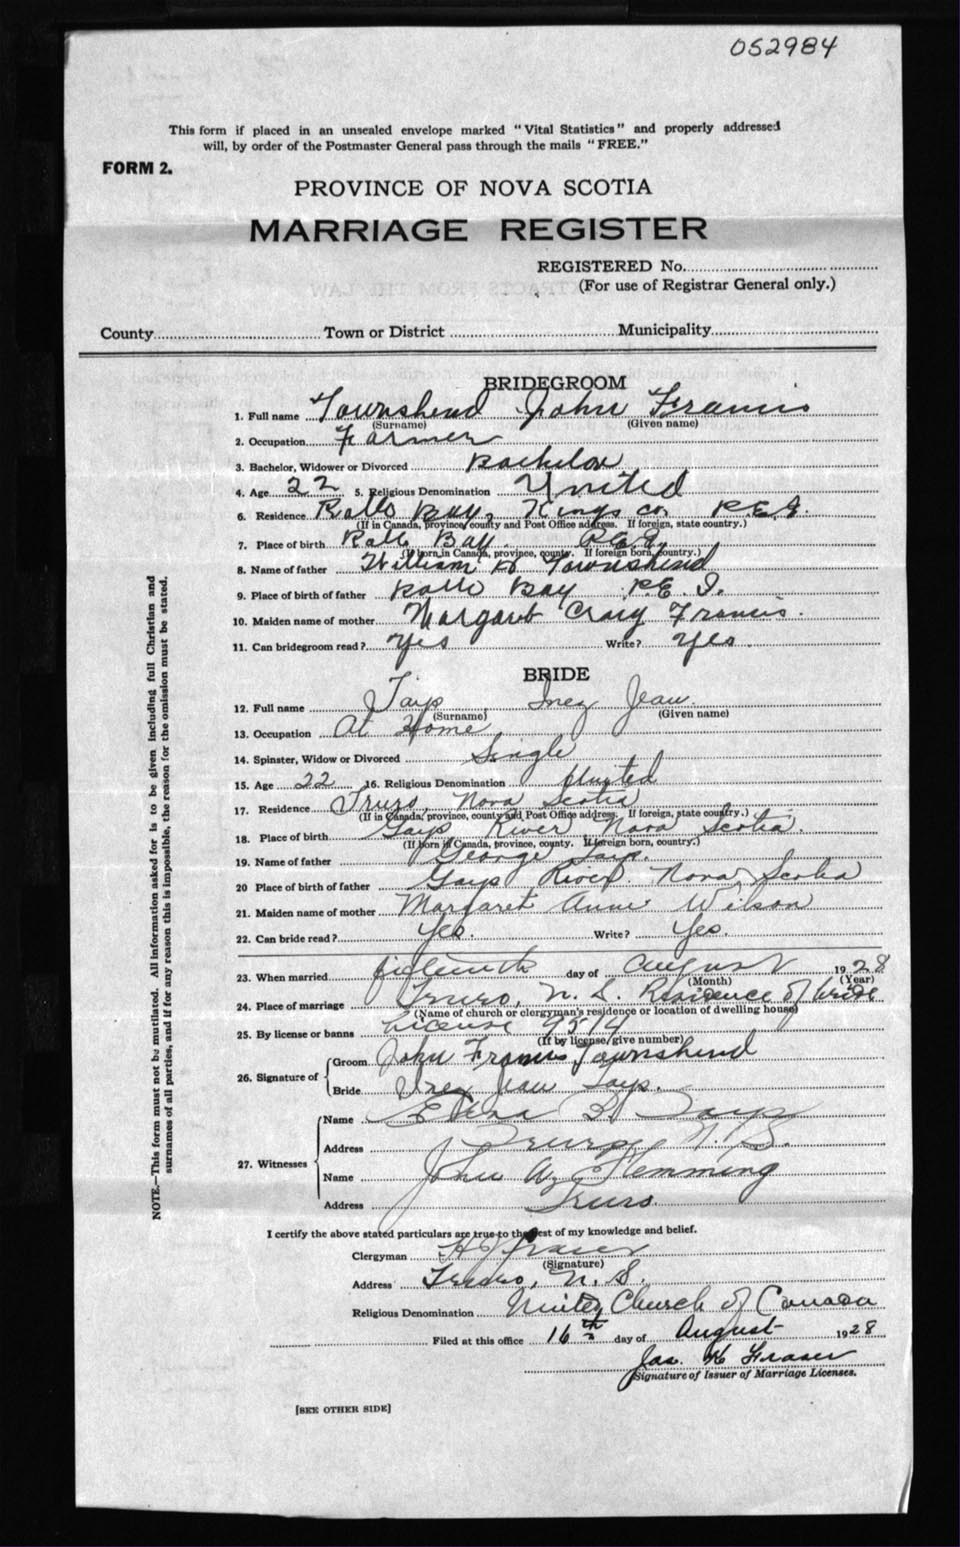 052984
This form if placed in an unsealed envelope marked "Vital Statistics" and properly addressed
will, by order of the Postmaster General pass through the mails "FREE."
FORM 2.
PROVINCE OF NOVA SCOTIA
MARRIAGE REGISTER
REGISTERED No.
(For use of Registrar General only.)
County Town or District Municipality
BRIDEGROOM
1. Full name Townshend John Francis
(Surname) (Given name)
2. Occupation Farmer
3. Bachelor, Widower or Divorced Bachelor
4. Age 22 5. Religious Denomination United
6. Residence Rollo Bay, Kings Co. P.E.I.
(If in Canada, province, county and Post Office address. If foreign, state country.)
7. Place of birth Rollo Bay P.E.I.
(If born in Canada, province, county. If foreign born, country.)
8. Name of father William H Townshend
9. Place of birth of father Rollo Bay P.E.I.
10. Maiden name of mother Margaret Craig Francis.
11. Can bridegroom read? Yes Write? Yes.
BRIDE
12. Full name Inez Jean
(Surname) (Given name)
13. Occupation At Home
14. Spinster, Widow or Divorced Single
15. Age 22 16. Religious Denomination United
17. Residence Truro, Nova Scotia
(If in Canada, province, county and Post Office address. If foreign, state country.)
18. Place of birth Gays River Nova Scotia.
(If born in Canada, province, county. If foreign born, country.)
19. Name of father George
20 Place of birth of father Gays River. Nova Scotia
21. Maiden name of mother Margaret Anne Wilson
22. Can bride read? Yes. Write? Yes.
23. When married fifteenth day of August 1928
(Month) (Year)
24. Place of marriage Truro, N. S. Residence of bride
(Name of church or clergyman's residence or location of dwelling house)
25. By license or banns License 9514
(If by license, give number)
26. Signature of Groom John Francis Townshend
Bride Inez Jean
27. Witnesses
Name Edna
Address Truro N. S.
Name John A. Flemming
Address Truro.
I certify the above stated particulars are true to the best of my knowledge and belief.
Clergyman Fraser
(Signature)
Address Truro, N. S.
Religious Denomination United Church of Canada
Filed at this office 16th day of August 1928
Jas. K Fraser
Signature of Issuer of Marriage Licenses.
[SEE OTHER SIDE]
NOTE.—This form must not be mutilated. All information asked for is to be given including full Christian and
surnames of all parties, and if for any reason this is impossible, the reason for the omission must be stated.